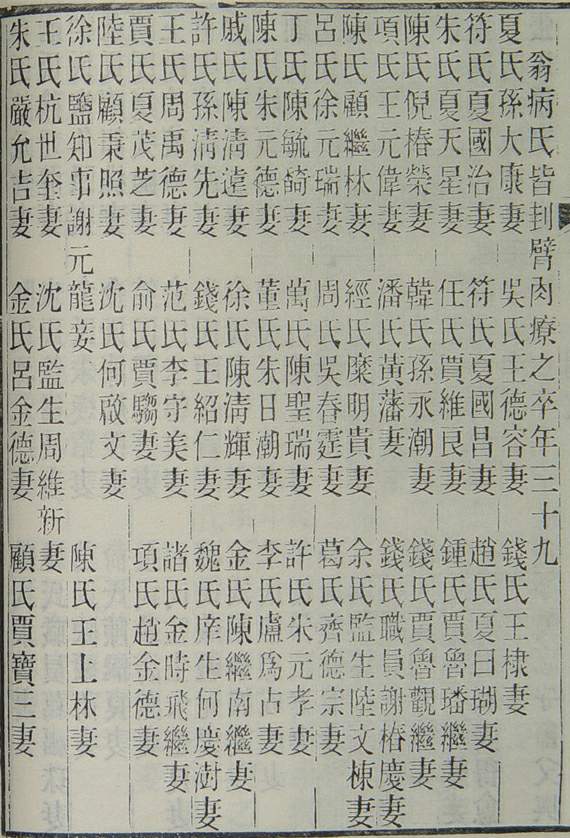 翁病氏皆刲臂肉療之卒年三十九
夏氏孫大康妻 吳氏王德容妻 錢氏王棣妻
符氏夏國治妻 符氏夏國昌妻 趙氏夏日瑚妻
朱氏夏天星妻 任氏賈維良妻 鍾氏賈魯璠繼妻
陳氏倪椿榮妻 韓氏孫永潮妻 錢氏賈魯觀繼妻
項氏王元偉妻 潘氏黃藩妻 錢氏職員謝椿慶妻
陳氏顧繼林妻 經氏糜明貴妻 余氏監生陸文棟妻
呂氏徐元瑞妻 周氏吳春霆妻 葛氏齊德宗妻
丁氏陳毓碕妻 萬氏陳聖瑞妻 許氏朱元孝妻
陳氏朱元德妻 董氏朱日潮妻 李氏盧爲占妻
戚氏陳淸遠妻 徐氏陳淸輝妻 金氏陳繼南繼妻
許氏孫淸先妻 錢氏王紹仁妻 魏氏庠生何慶澍妻
王氏周禹德妻 范氏李守美妻 諸氏金時飛繼妻
賈氏夏茂芝妻 俞氏賈騶妻 項氏趙金德妻
陸氏顧秉照妻 沈氏何啟文妻
徐氏鹽知事謝元龍妾 陳氏王上林妻
王氏杭世奎妻 沈氏監生周維新妻
朱氏嚴允吉妻 金氏呂金德妻 顧氏賈寶三妻